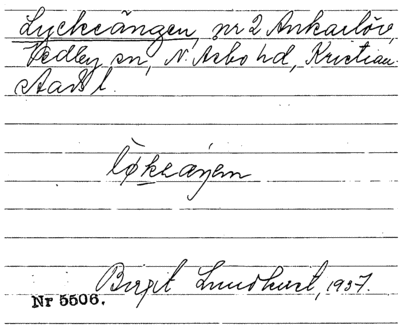 Lyckeängen, nr 2 Ankarlöv,
Vedby sn, N. Åsbo hd, Kristian-
stads l.
Birgit Lundqvist, 1937.
Nr 5506.